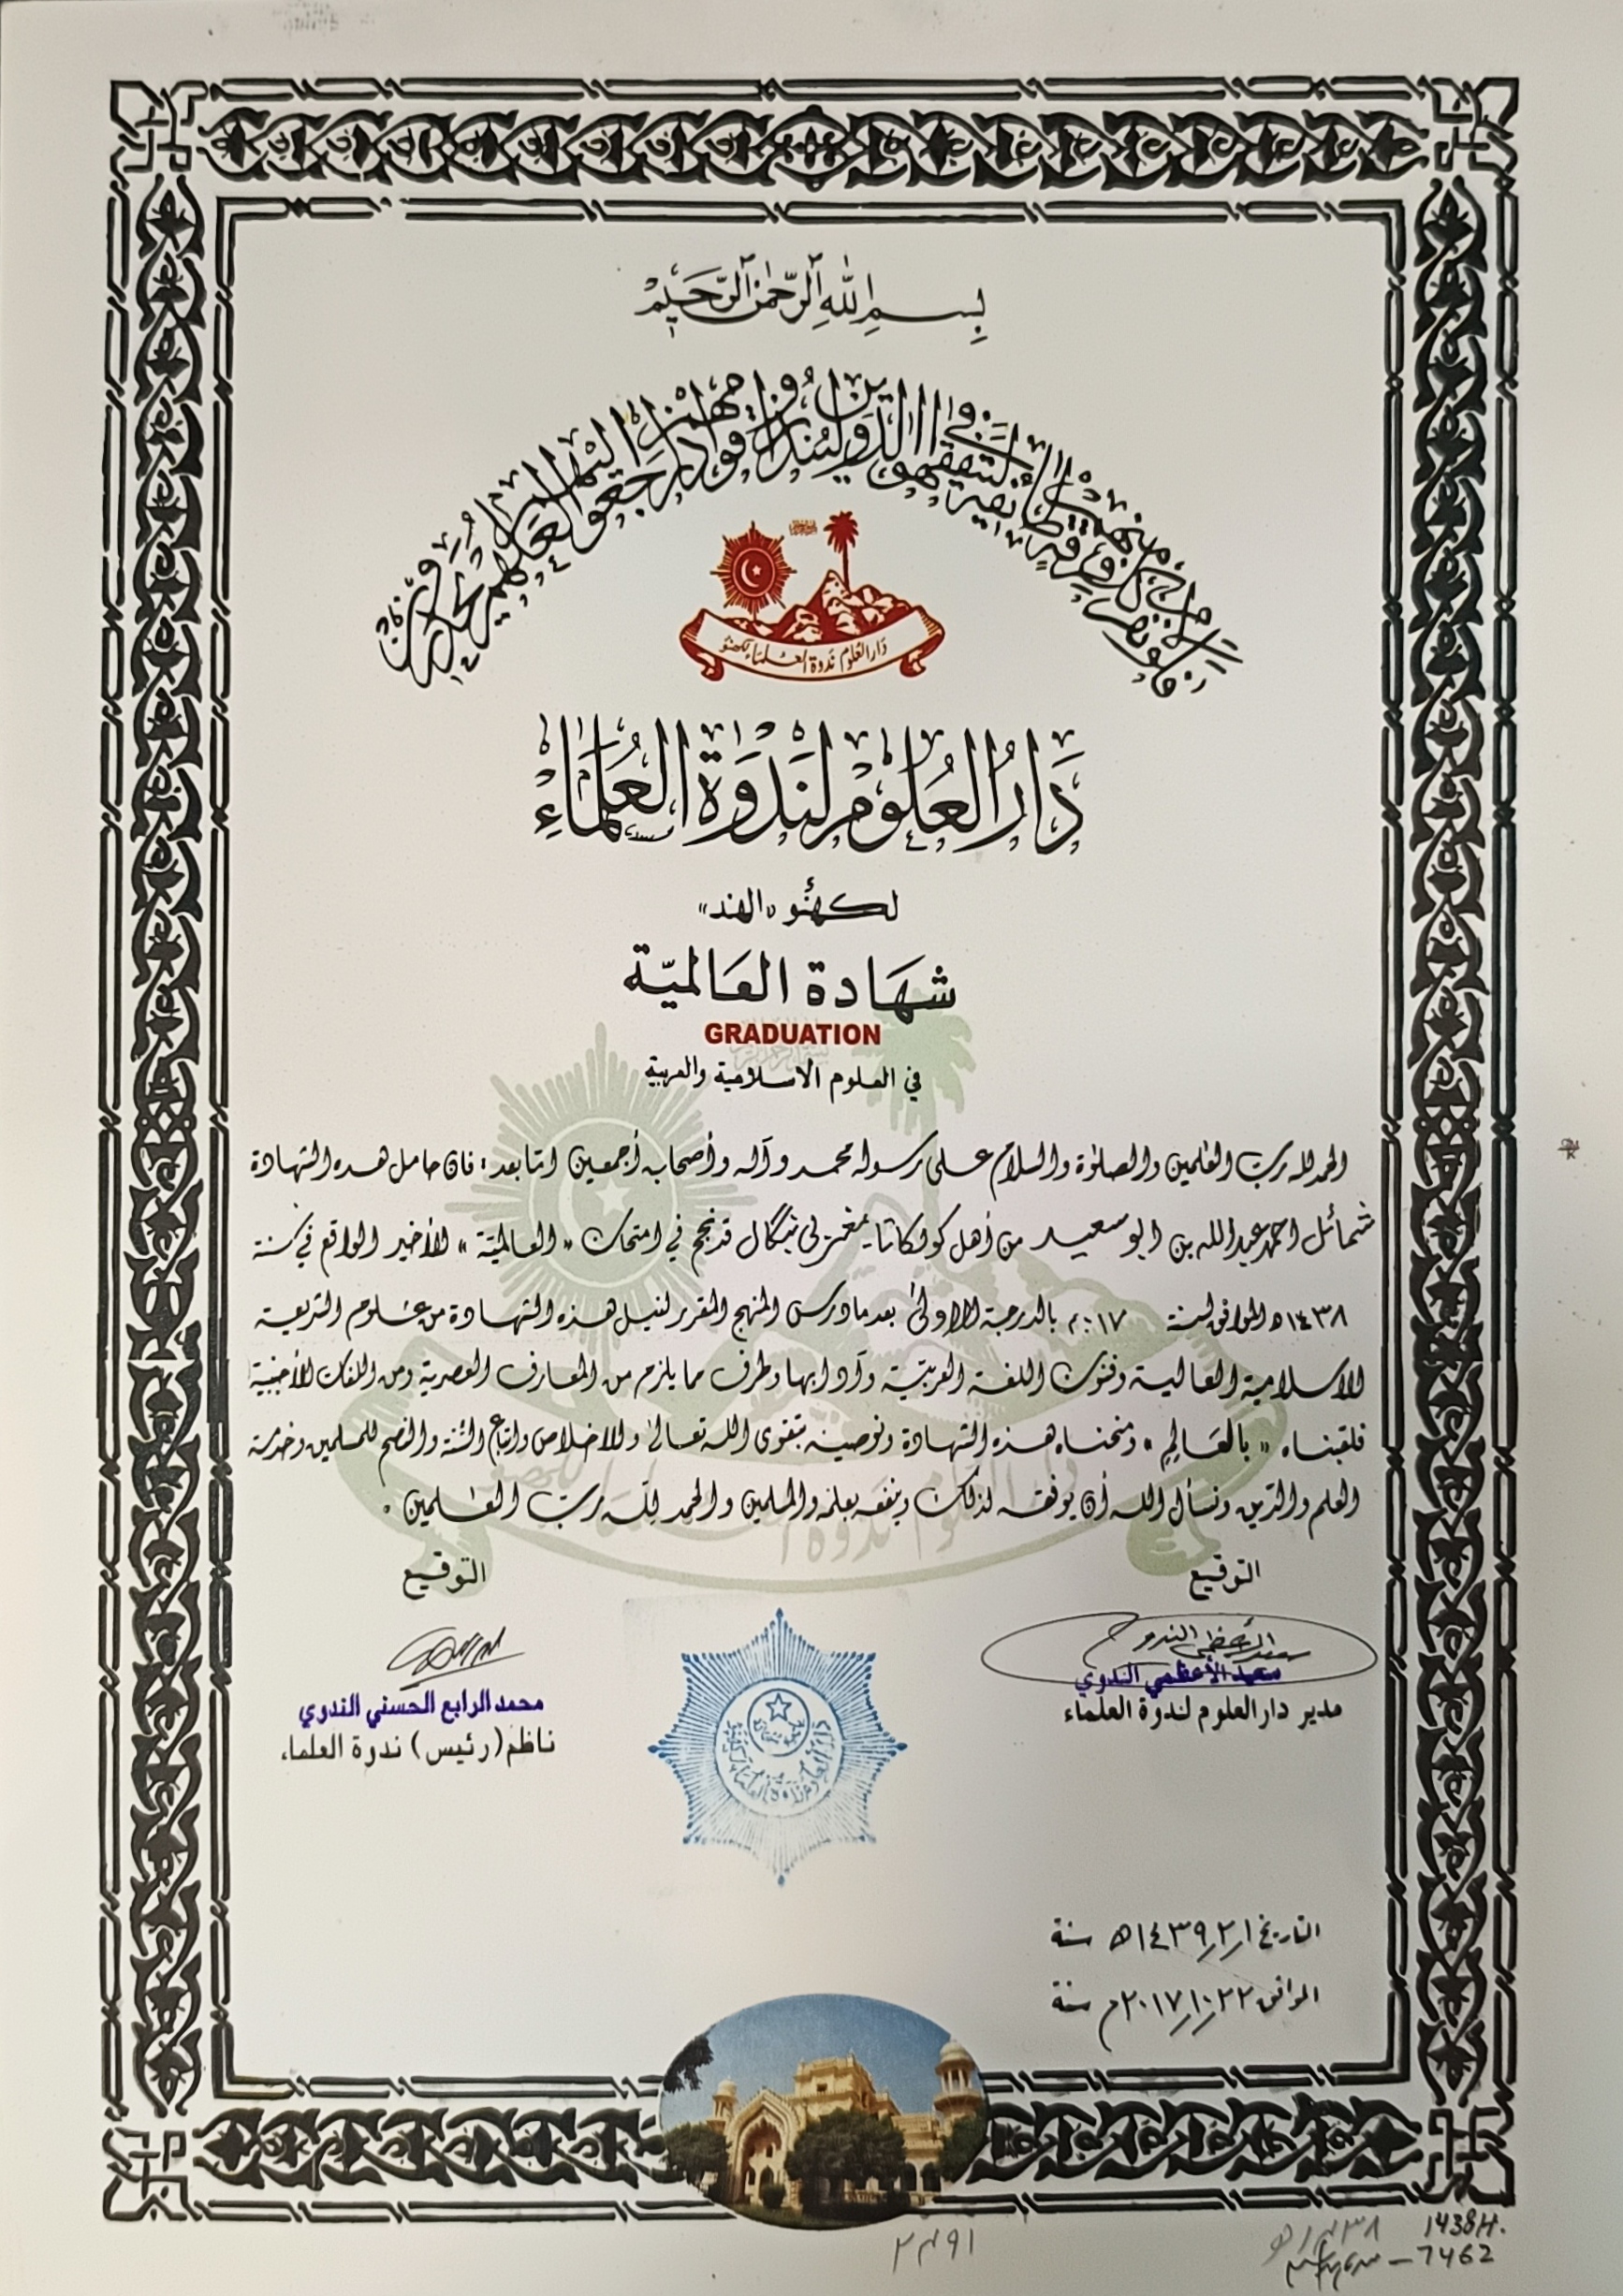 بِسْمِ اللهِ الرَّحْمٰنِ الرَّحِيْمِ
فلولا نفر من كل فرقة منهم طائفة ليتفقهوا في الدين ولينذروا قومهم إذا رجعوا إليهم لعلهم يحذرون
دَارُ العُلُوم نَدوَة العُلَمَاء لكهنؤ
دَارُ العُلُوْم لِنَدْوَةِ العُلَمَاءِ
لكهنؤ «الهند»
شهَادة العَالميّة
GRADUATION
في العلوم الاسلامية والعربية
الحمد لله رب العٰلمين والصلوٰة والسلام على رسوله محمد وآله وأصحابه أجمعين امّا بعد؛ فان حامل هذه الشهادة
شمائل احمد عبدالله بن ابو سعيد من أهل كولكاتا، مغربي بنگال قد نجح في امتحان «العالميّة» الأخير الواقع في سنة
١٤٣٨ھ الموافق لسنة ٢٠١٧م بالدرجة الاولىٰ بعد ما درس المنهج المقرر لنيل هذه الشهادة من علوم الشريعة
الاسلامية العالية وفنون اللغة العربيّة وآدابها وطرف مما يلزم من المعارف العصرية ومن اللغات الأجنبية
فلقبناه «بالعَالِم» ومنحناه هذه الشهادة ونوصيه بتقوى الله تعالىٰ والاخلاص واتباع السُّنّة والنصح للمسلمين وخدمة
العلم والدين ونسأل الله أن يوفقه لذلك وينفعه بعلمه والمسلمين والحمد للّه ربّ العٰلمين.
التوقيع
التوقيع
سعيد الأعظمي الندوي
سعيد الأعظمي الندوي
مدير دار العلوم لندوة العلماء
محمد الرابع الحسني الندوي
ناظم (رئيس) ندوة العلماء
التاريخ ١/٢/١٤٣٩ھ سنة
الموافق ٢٢/١٠/٢٠١٧م سنة
1438H.
7462